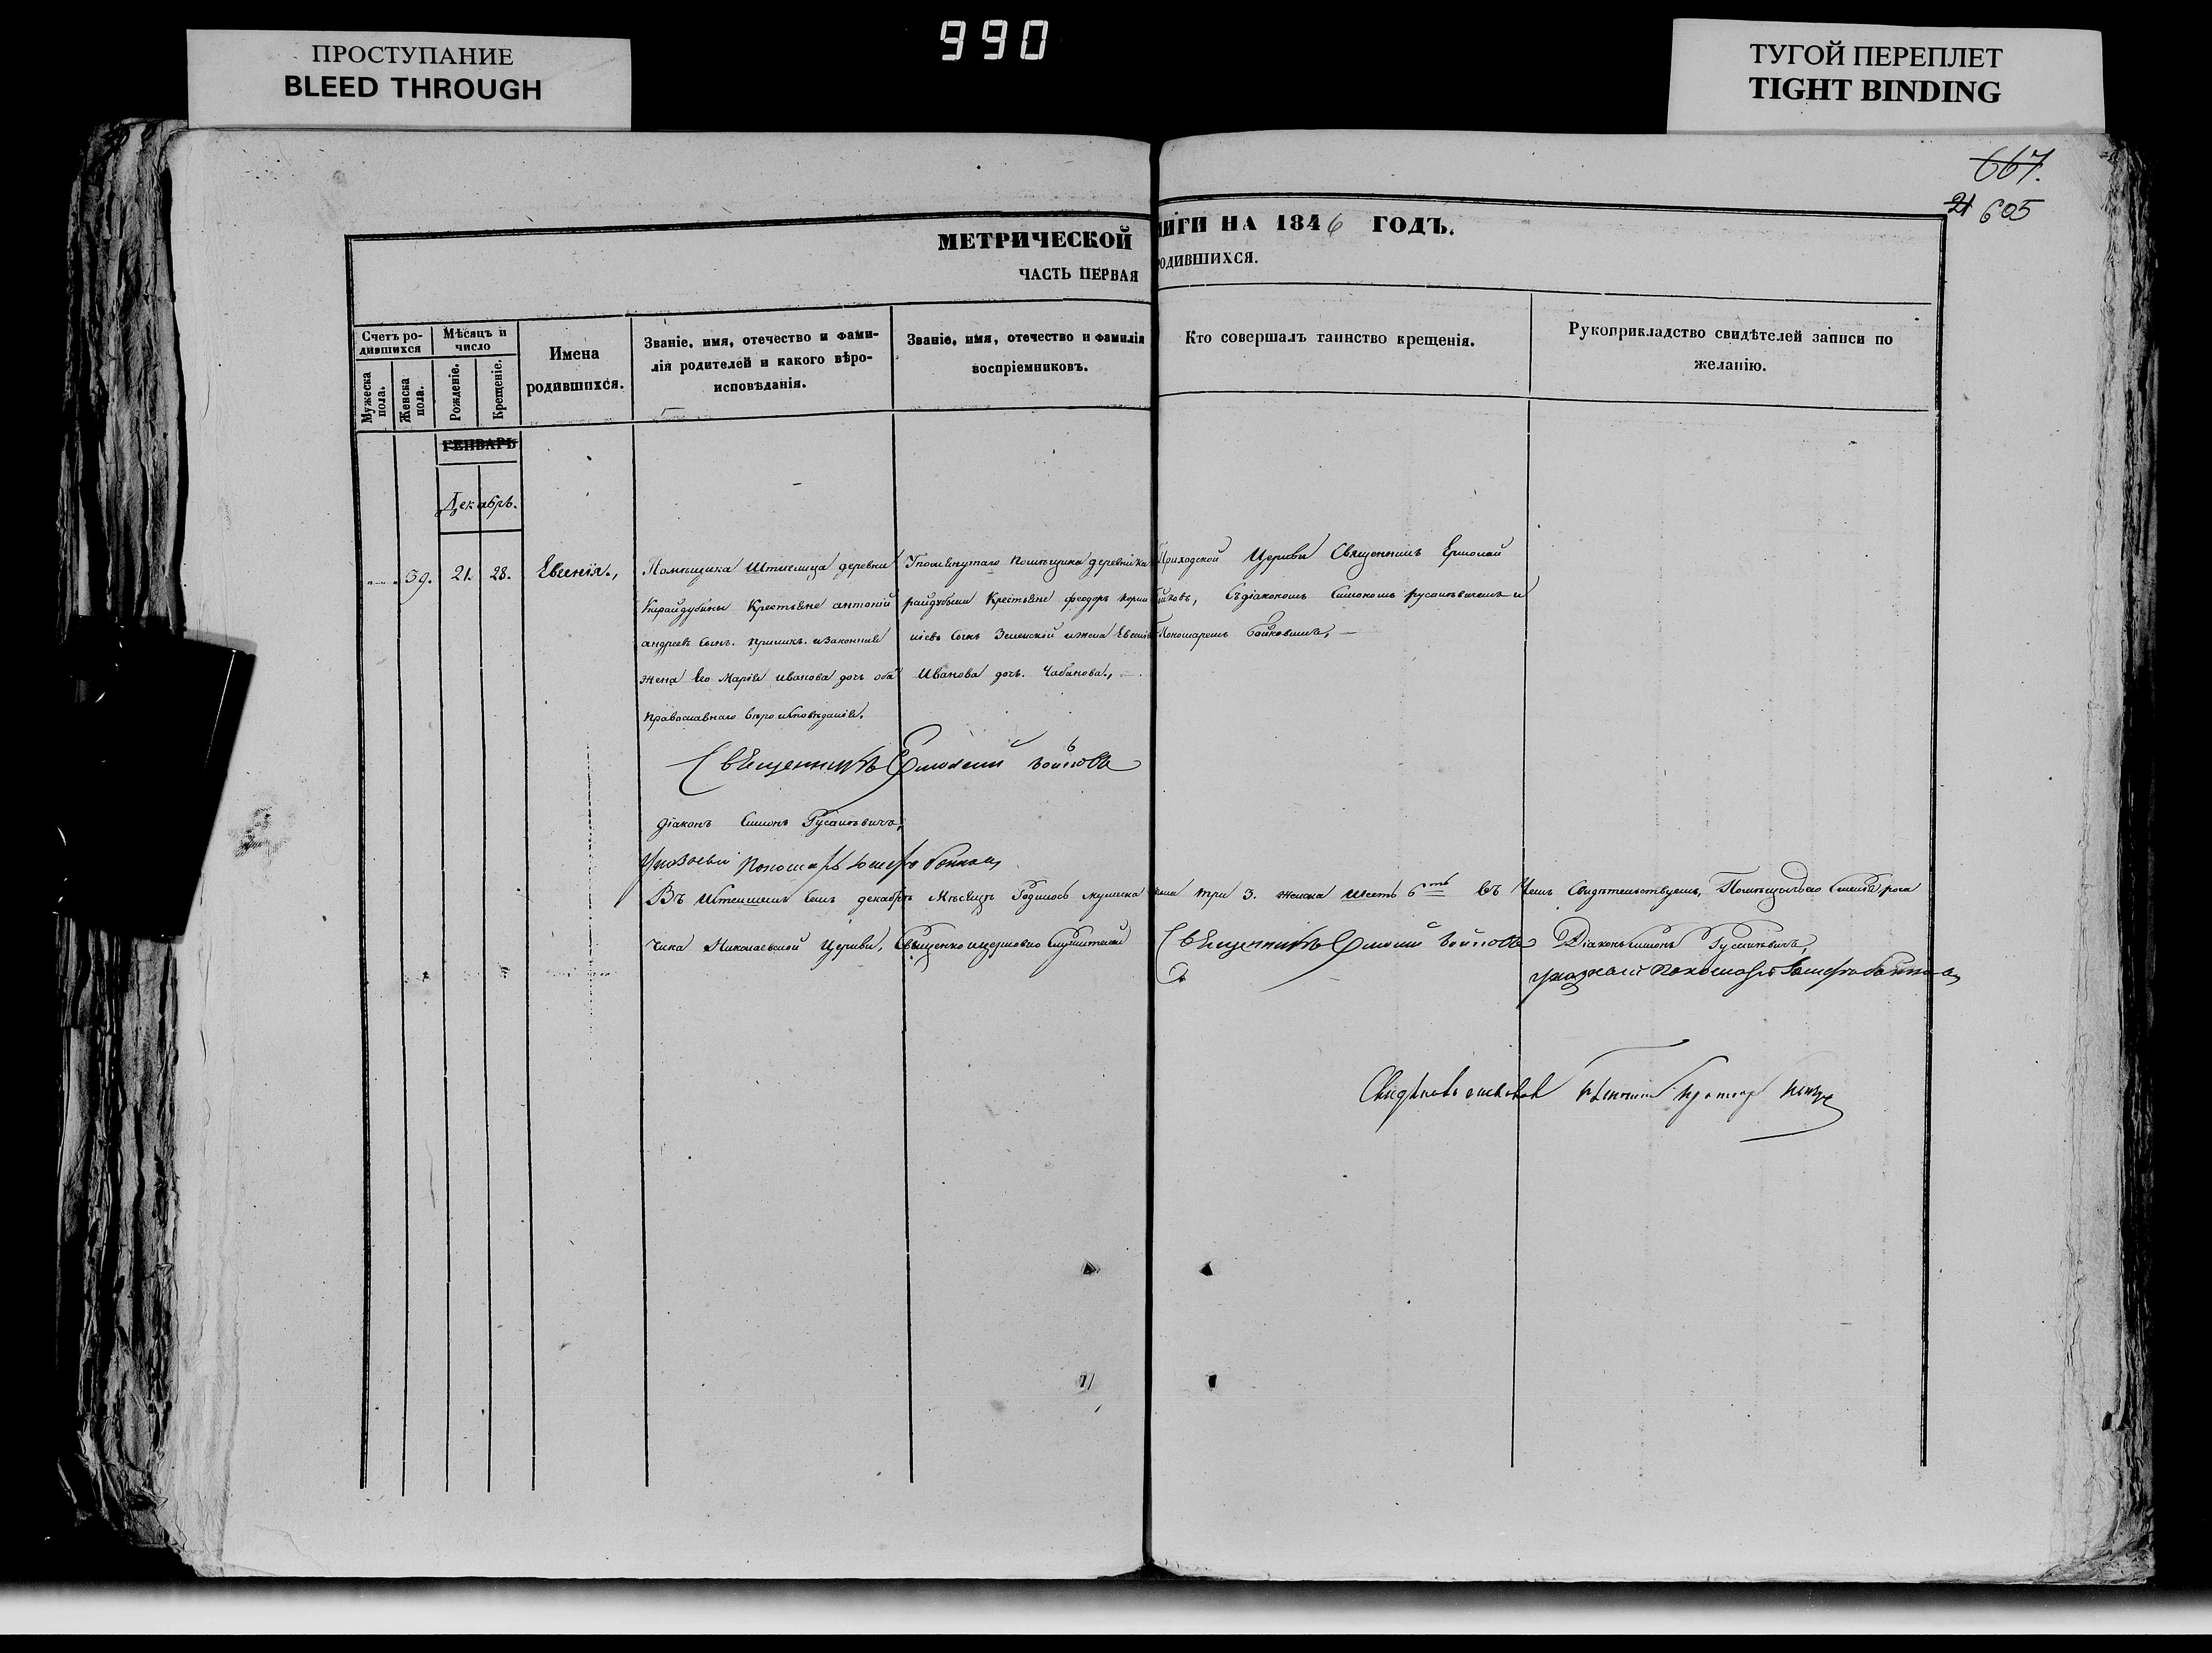 990
ПРОСТУПАНИЕ
BLEED THROUGH
ТУГОЙ ПЕРЕПЛЕТ
TIGHT BINDING
667.
21 605
МЕТРИЧЕСКОЙ
ИГИ НА 1846 ГОДЪ.
ЧАСТЬ ПЕРВАЯ
ОДИВШИХСЯ.
Счетъ ро-
дившихся
Мужеска
пола.
Женска
пола.
Мѣсяцъ и
число
Рожденіе.
Крещеніе.
Имена
родившихся.
Званіе, имя, отечество и фами-
лія родителей и какого вѣро-
исповѣданія.
Званіе, имя, отечество и фамилія
воспріемниковъ.
Кто совершалъ таинство крещенія.
Рукоприкладство свидѣтелей записи по
желанію.
ГЕНВАРЬ
Декабрь.
39. 21. 28. Евгенія.,
Помѣщика деревни
Карайдубины Крестьяне антоній
андреевъ сынъ. и законная
жена его Марія иванова дочь оба
православнаго вѣроисповѣданія.
Упомянутаго помѣщика деревни Ка
райдубины Крестьяне феодоръ
сынъ Зеленскій и жена
Иванова дочь. Чабанова.,
Приходской Церкви Священникъ Ермолай
Войновъ, съ діакономъ Симономъ русаневичемъ и
Пономаремъ Бойковымъ,
Священникъ Ермолай Войновъ
діаконъ Симонъ Русаневичъ,
Указный Пономарь
Въ семъ декабрѣ Мѣсяцѣ Родилось мужеска пола три 3. женска шесть 6ть въ чемъ свидѣтельствуемъ,
Николаевской Церкви, Священно церковно служители
Священникъ Ермолай Войновъ
Діаконъ Симонъ Русаневичъ,
указный пономарь